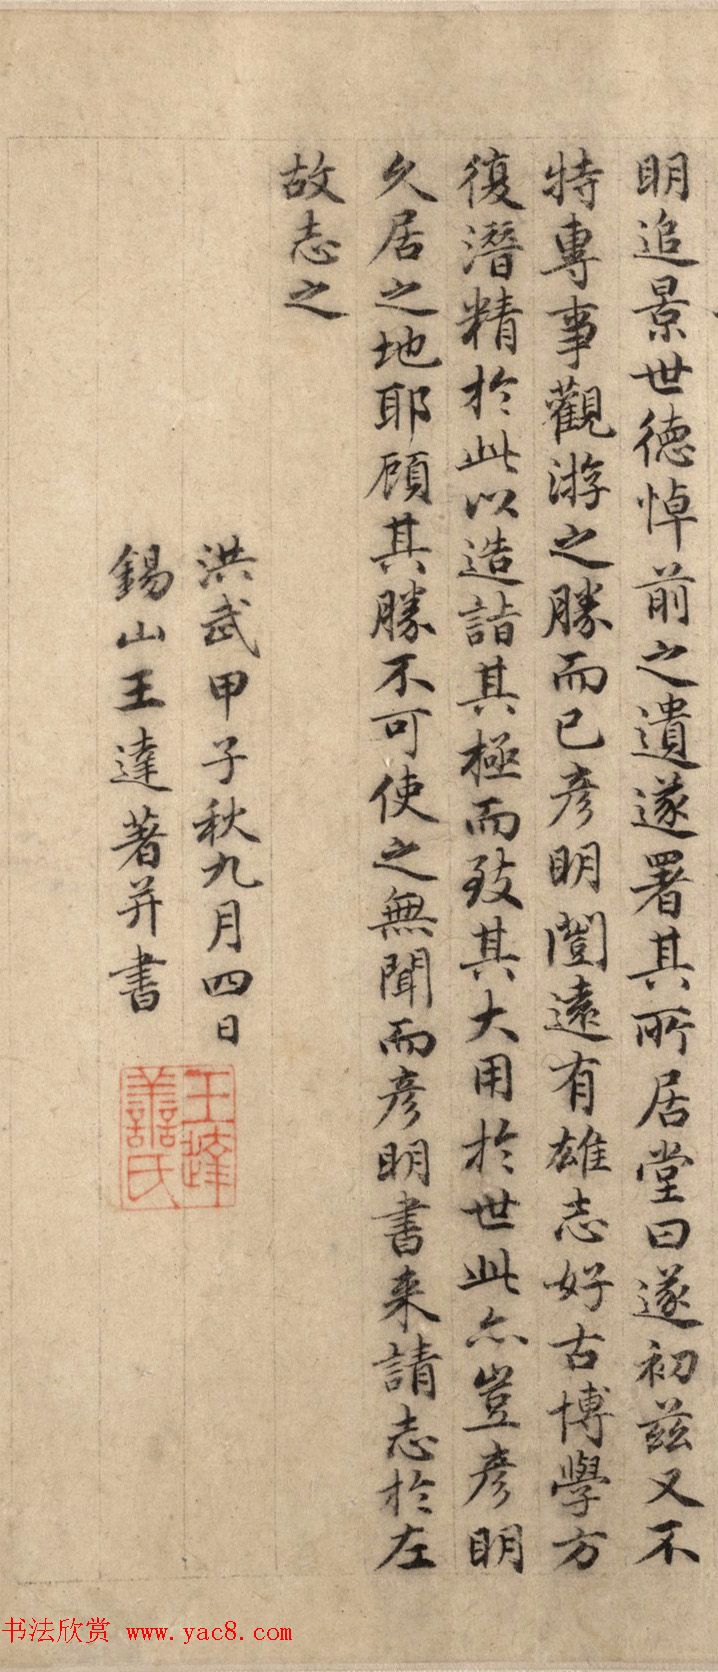 明追景世德悼前之遺遂署其所居堂曰遂初茲又不
特專事觀游之勝而已彥明闓遠有雄志好古博學方
復潛精於此以造詣其極而致其大用於世此亦豈彥明
久居之地耶顧其勝不可使之無聞而彥明書来請志於左
故志之
洪武甲子秋九月四日
錫山王達著并書
王達
善氏
书法欣赏 www.yac8.com